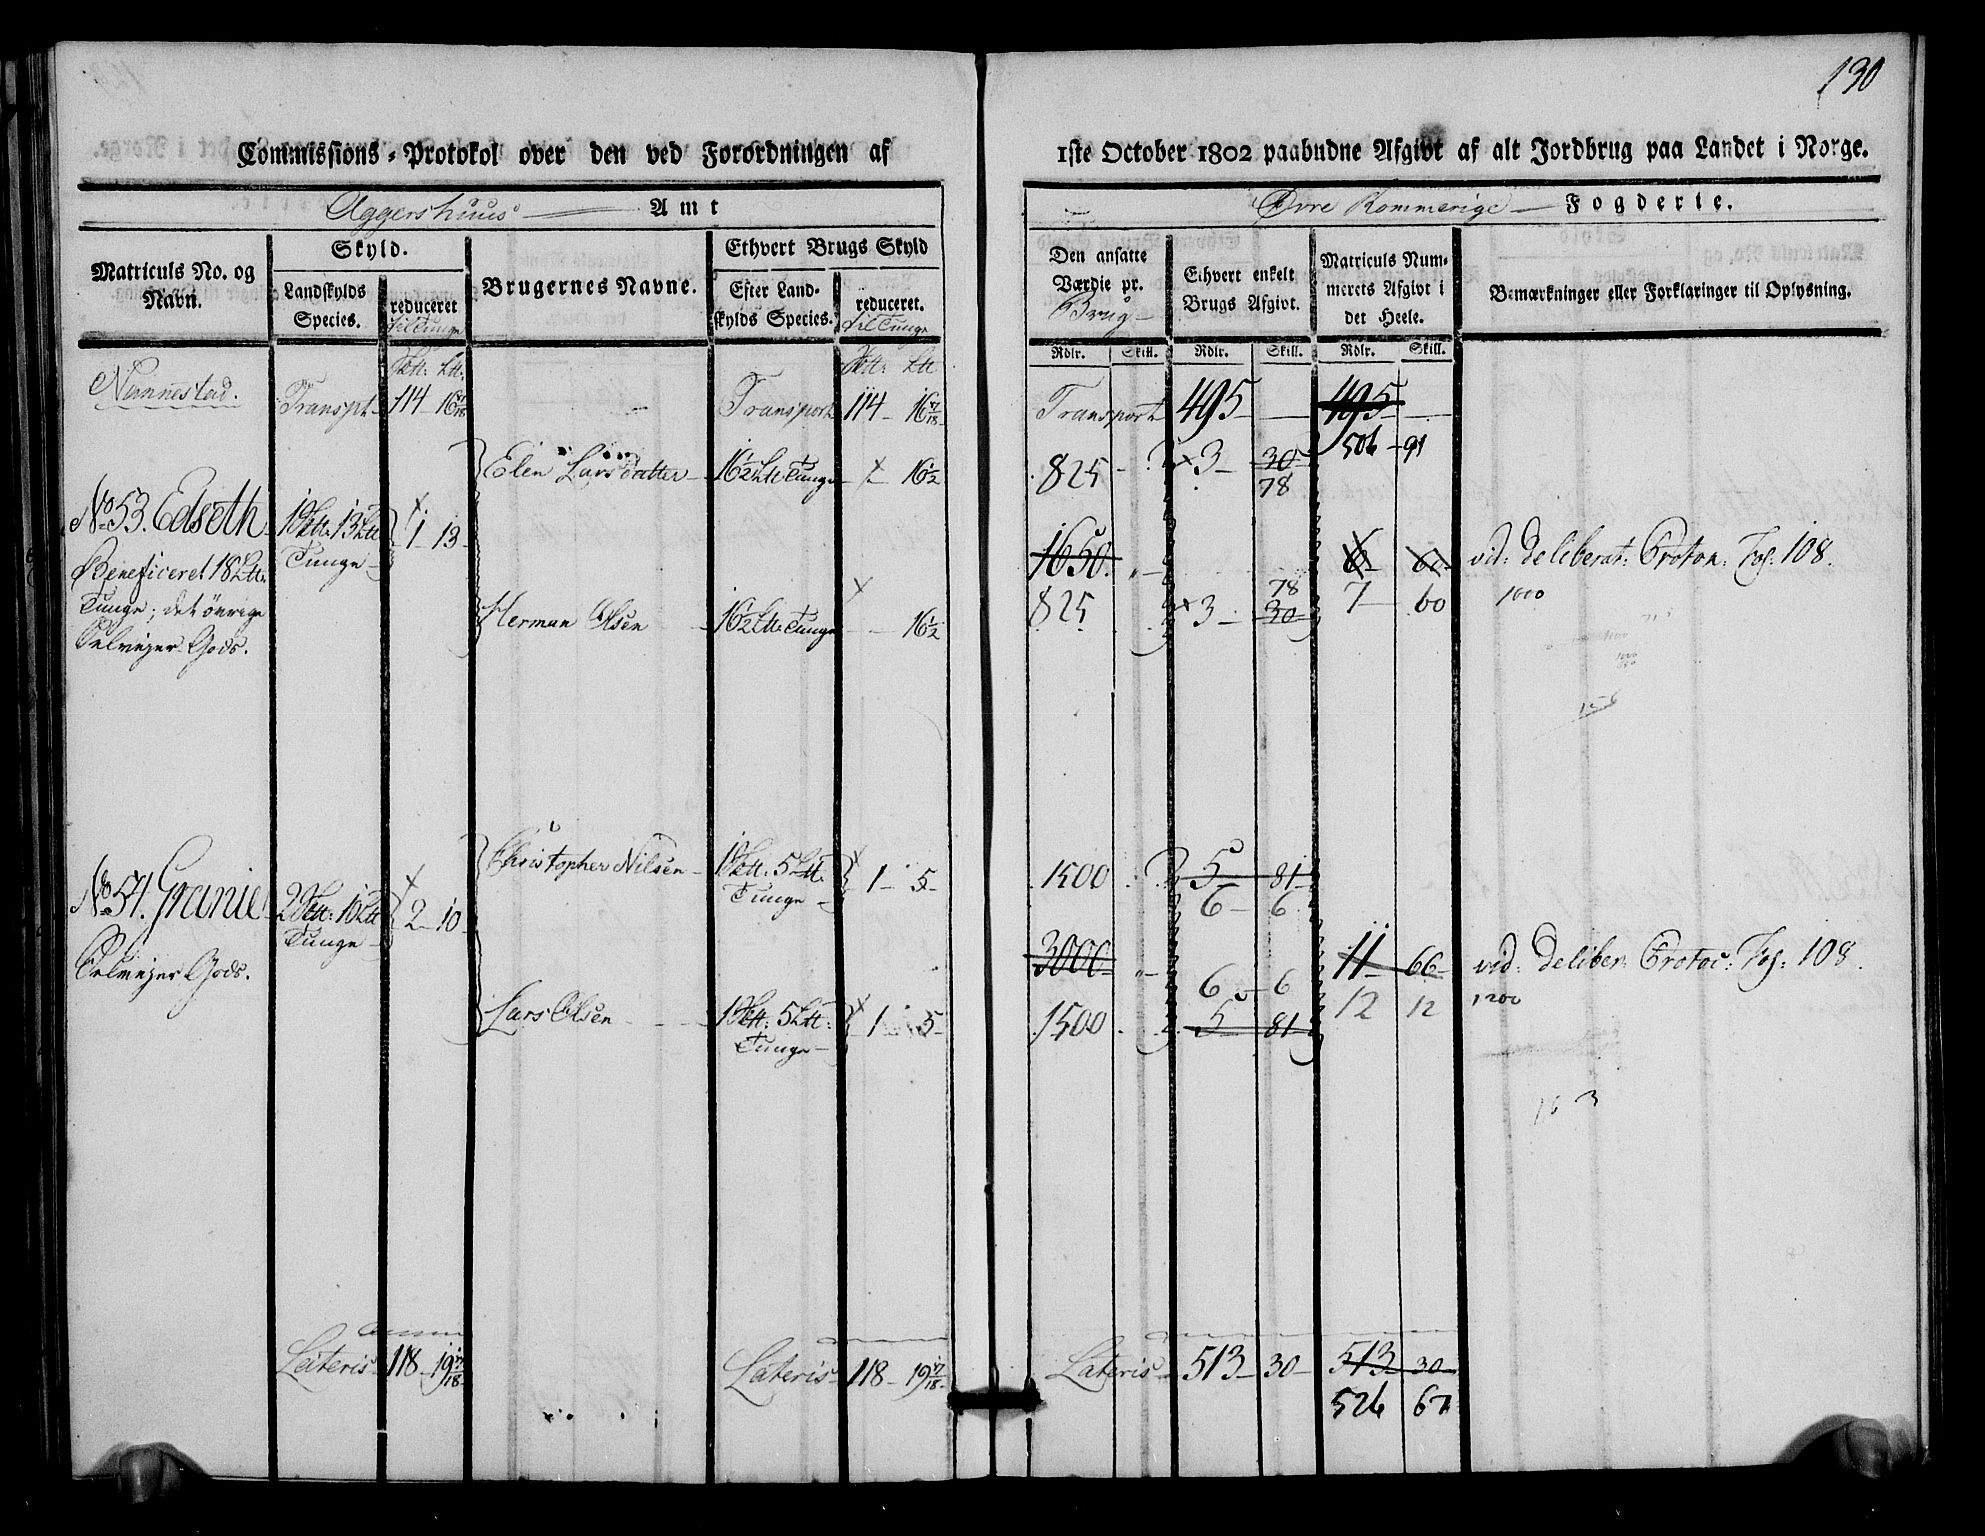 130
Commissions-Protokol over den ved Forordningen af
1ste October 1802 paabudne Afgivt af alt Jordbrug paa Landet i Norge.
Aggershuus Amt
Øvre Rommerige Fogderie.
Matriculs No. og Navn.
Skyld.
Landskylds Species.
reduceret til Tunge
Brugernes Navne.
Ethvert Brugs Skyld
Efter Landskylds Species.
reduceret. til Tunge
Den ansatte Værdie pr. Brug
Ethvert enkelt Brugs Afgivt.
Matriculs Nummerets Afgivt i det Heele.
Bemærkninger eller Forklaringer til Oplysning.
Rdlr. Skill. Rdlr. Skill. Rdlr. Skill.
Nannestad. Transpt. 114 - 16 17/18 Transport 114 - 16 17/18 Transport 495 - 495 -
506 - 91
Elen Larsdatter 16 1/2 Ltt: Tunge - 16 1/2 825 3 - 30
78
No 53. Edseth 1 Sett: 13 Ltt: 1 - 13
Tunge
Beneficeret 18 Ltt:
Tunge; det övrige
Selveier Gods.
1650. 6 60 vid: deliberat: Protoc: Fog: 108.
Herman Olsen 16 1/2 Ltt: Tunge 16 1/2 825 3 - 30 7 - 60 1000
78
Christopher Nilsen 1 Sett: 5 Ltt: 1 - 5 1500 5 - 81
Tunge 6 - 6
No 54. Granie 2 Sett: 10 Ltt 2 - 10
Tunge
Selveier Gods.
3000 11 - 66 vid: deliber: Protoc: Fog: 108.
6 - 6 12 12 1200
Lars Olsen 1 Sett: 5 Ltt: 1 - 5 1500 5 - 81
Tunge
Lateris 118 - 19 17/18 Lateris 118 - 19 17/18 Lateris 513 - 30 513 - 30
526 67